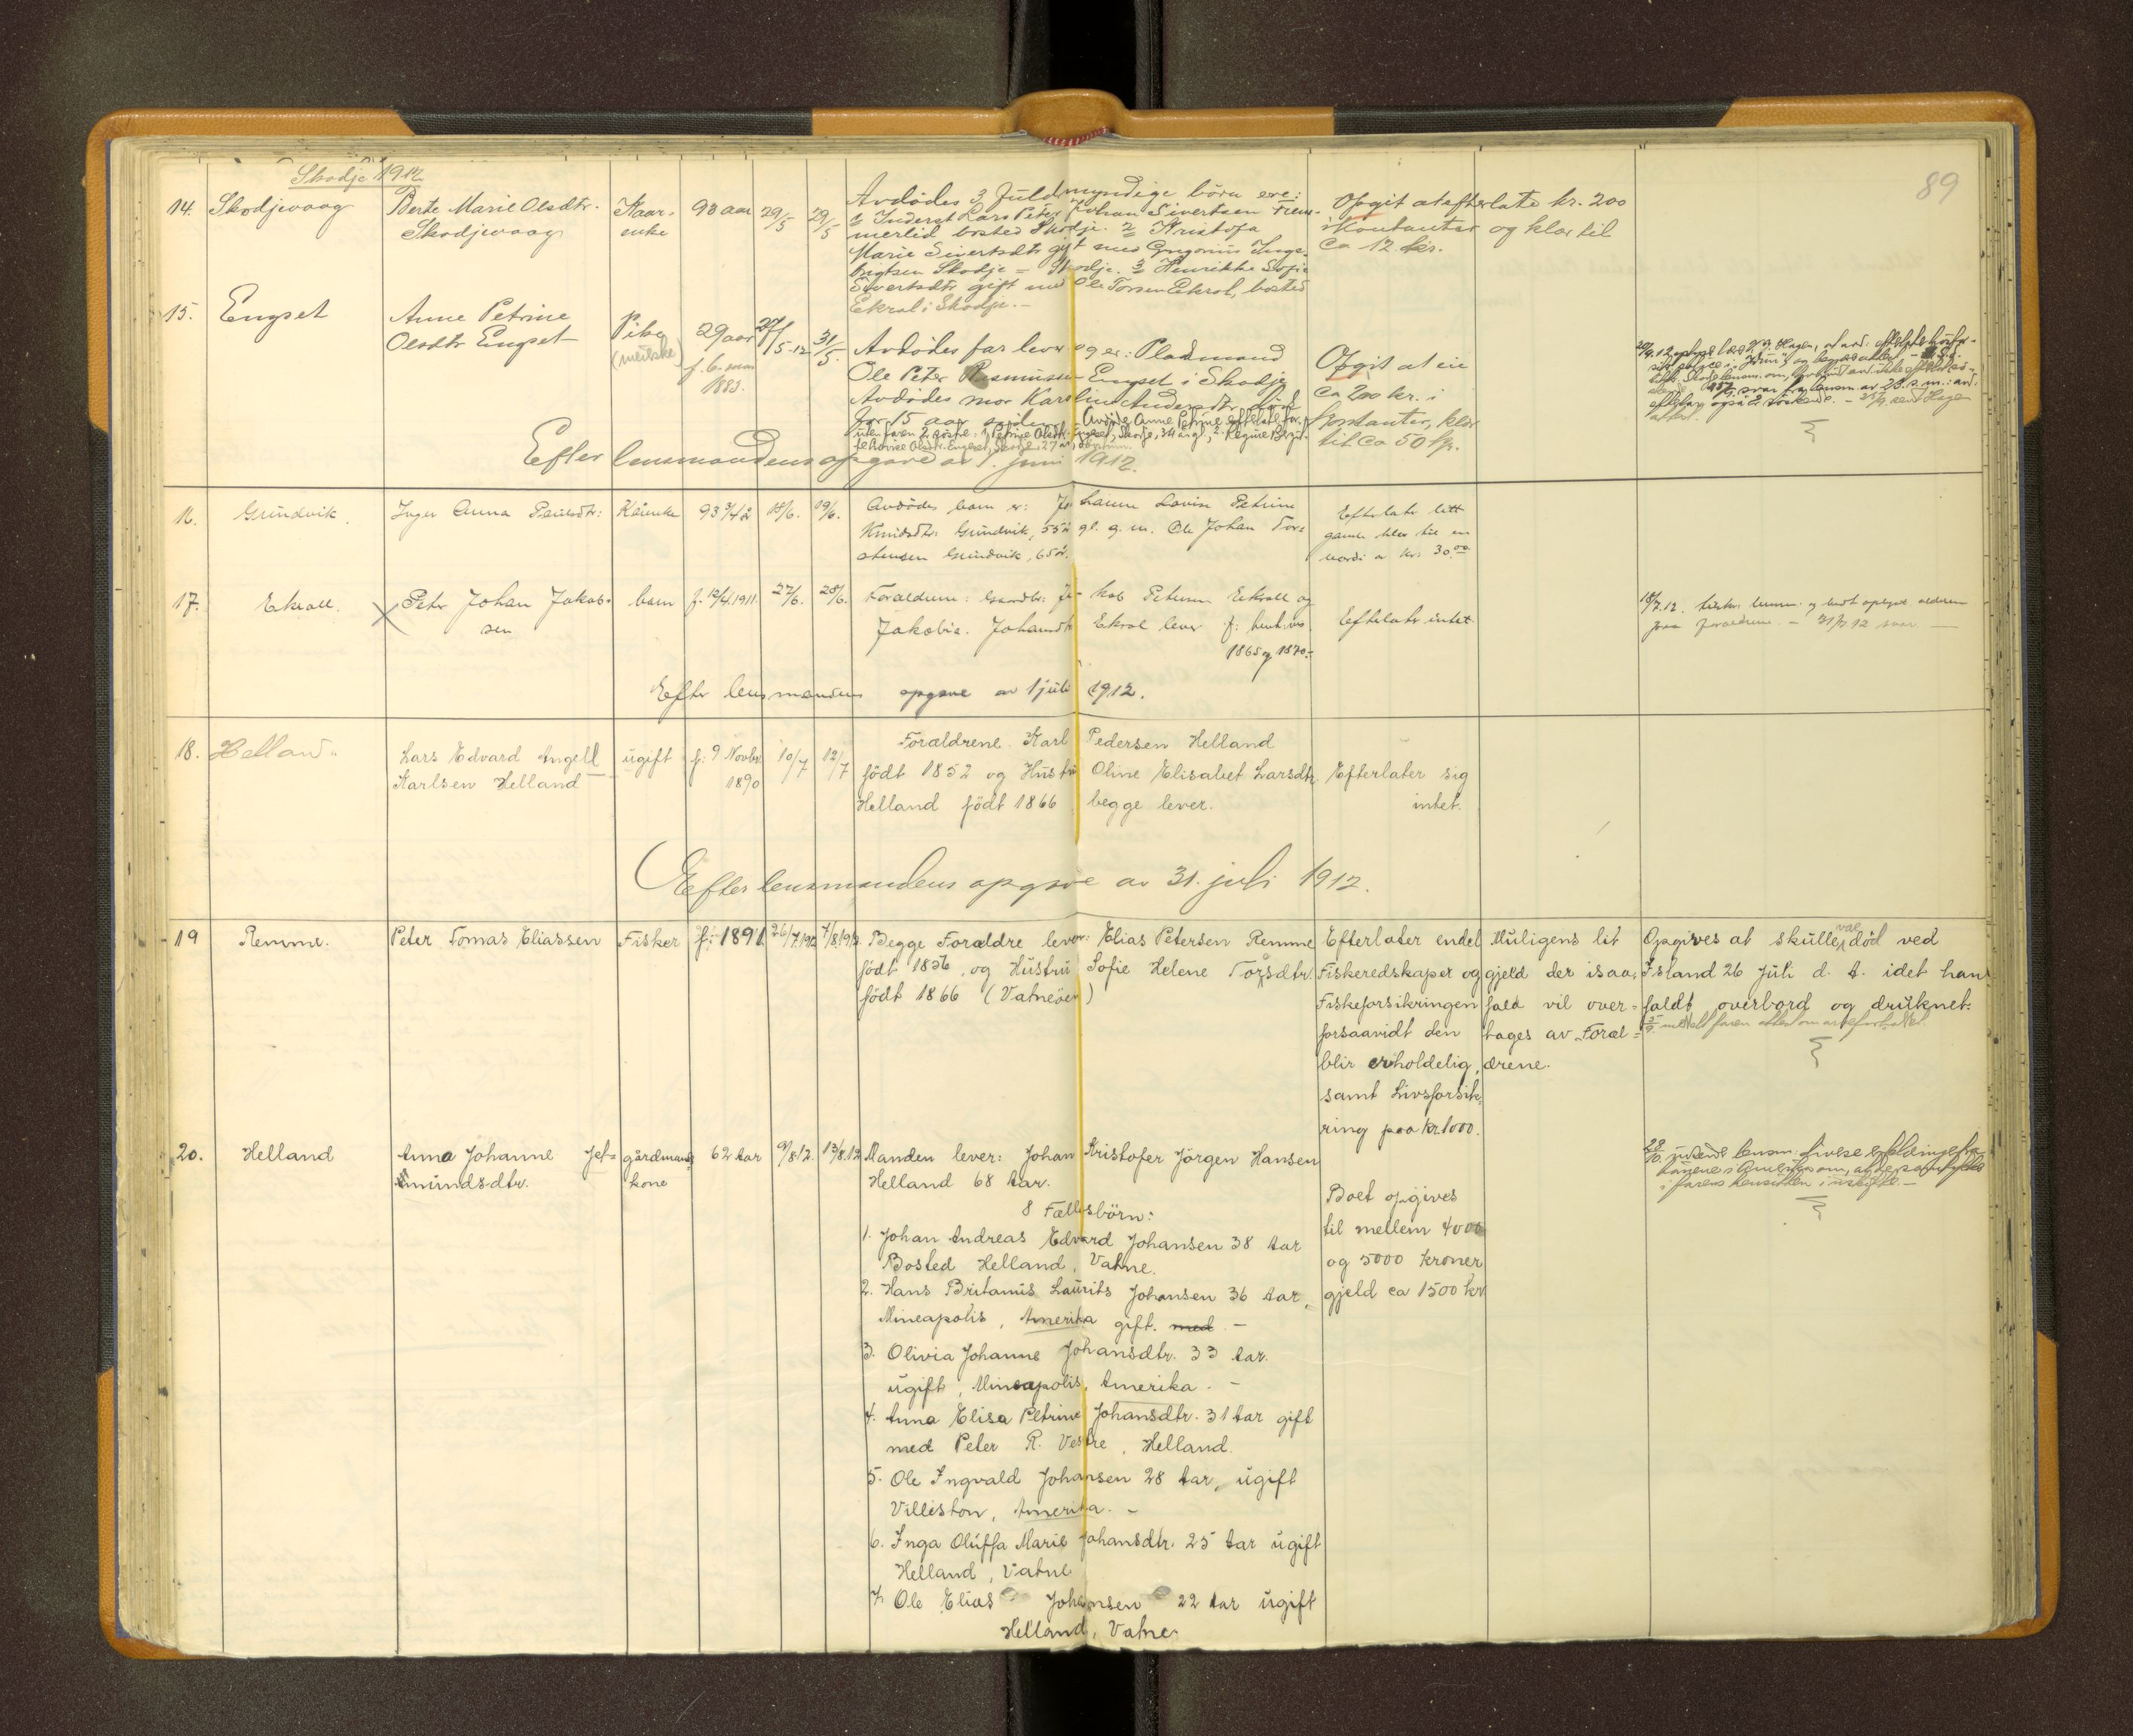 Skodje 1912.
89
14. Skodjevaag Berte Marie Olsdtr. Skodjevaag Kaarenke 93 aar 29/5 29/5
Avdødes 3 fuldmyndige børn ere:
1 Inderst Lars Peter Johan Sivertsen Frem-
merlid bosted Skodje. 2 Kristofa
Marie Sivertsdtr gift med Gregorius Inge-
brigtsen Skodje = Skodje. 3 Henrikke Sofie
Sivertsdtr gift med Ole Torsen Ekrol, bosted
Ekrol i Skodje. -
Opgit at efterlate kr. 200
i Kontanter og klær til
ca 12 kr.
15. Engset Anne Petrine Olsdtr Engset Pike 29 aar f. 6. 1883. 27/5-12 31/5.
Avdødes far lever og er: Pladsmand
Ole Peter Rasmussen Engset i Skodje
Avdødes mor Karoline Andersdtr død
for 15 aar siden. Avdøde Anne Petrine efterlater for-
uten faren 2 søstre: 1, Petrine Olsdtr. Engset, Skodje, 34 år gl, 2. Regine
Olsdtr. Engset, Skodje, 27 år,
Opgit at eie
ca 200 kr. i
kontanter, klær
til ca 50 kr.
Efter lensmandens opgave av 1. juni 1912.
16. Grindvik. Inger Anna Paulsdtr: Kårenke 93 3/4 år 18/6. 19/6.
Avdødes barn er: Johanne Lovise Petrine
Knudsdtr. Grindvik, 55 år gl. g. m. Ole Johan Tor-
stensen Grindvik, 65 år.
Efterlater litt
gamle klær til en
værdi a kr. 30.00
17. Ekroll. Peter Johan Jakob-
sen barn f. 12/4.1911. 27/6. 28/6.
Forældrene: Gaardbr. Jakob Petersen Ekroll og
Jakobie Johansdtr Ekrol lever f. henh.vis.
1865 og 1870.-
Efterlater intet.
18/7.12. tilskr. lensm. og bedt oplyst alderen
paa forældrene. - 21/7 12 svar. -
Efter lensmandens opgave av 1 juli 1912.
18. Helland.. Lars Edvard Angell
Karlsen Helland ugift f: 9 Novbr
1890 10/7 12/7
Forældrene Karl Pedersen Helland
født 1852 og Hustru Oline Elisabet Larsdtr.
Helland født 1866 begge lever.
Efterlater sig
intet.
Efter lensmandens opgave av 31. juli 1912.
19 Remme. Peter Tomas Eliassen Fisker f: 1891. 26/7.1912 7/8.1912
Begge Forældre lever: Elias Petersen Remme
født 1856, og Hustru Sofie Helene Torsdtr.
født 1866 (Vatneøen)
Efterlater endel
Fiskeredskaper og
Fiskeforsikringen
forsaavidt den
blir erholdelig,
samt Livsforsik-
ring paa kr. 1000.
Muligens lit
gjeld der isaa-
fald vil over=
tages av Foræl=
drene.
Opgives at skulle vae død ved
Island 26 juli d. A. idet han
faldt overbord og druknet.
20. Helland Anna Johanne Jet=
mundsdtr. gårdmands
kone 62 Aar 9/8.12. 13/8.12
Manden lever: Johan Kristofer Jørgen Hansen
Helland 68 Aar.
8 Fællesbörn:
1. Johan Andreas Edvard Johansen 38 Aar
Bosted Helland, Vatne.
2. Hans Britanus Laurits Johansen 36 Aar,
Mineapolis, Amerika gift. med -
3. Olivia Johanne Johansdtr. 33 Aar.
ugift, Mineapolis, Amerika. -
4. Anna Elisa Petrine Johansdtr. 31 Aar gift
med Peter R. Vestre, Helland.
5. Ole Ingvald Johansen 28 Aar, ugift
Villiston, Amerika. -
6. Inga Oluffa Marie Johansdtr. 25 Aar ugift
Helland, Vatne
7. Ole Elias Johansen 22 Aar ugift
Helland, Vatne.
Boet opgives
til mellem 4000
og 5000 kroner
gjeld ca 1500 kr